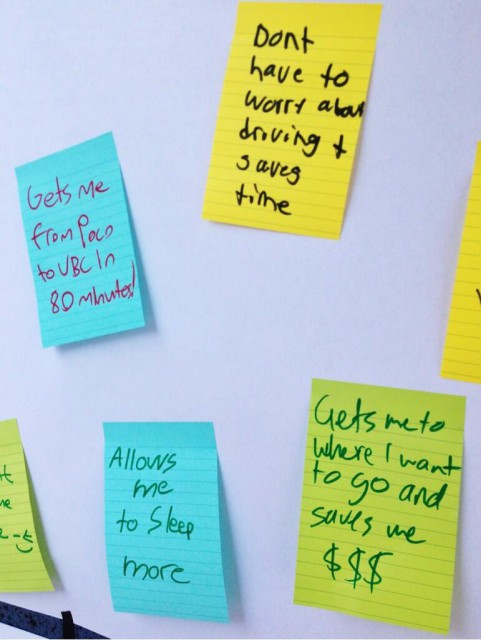 Dont
have to
worry about
driving +
saves
time
Gets me
from Poco
to UBC in
80 minutes!
Gets me to
where I want
to go and
saves me
$$$
Allows
me
to Sleep
more